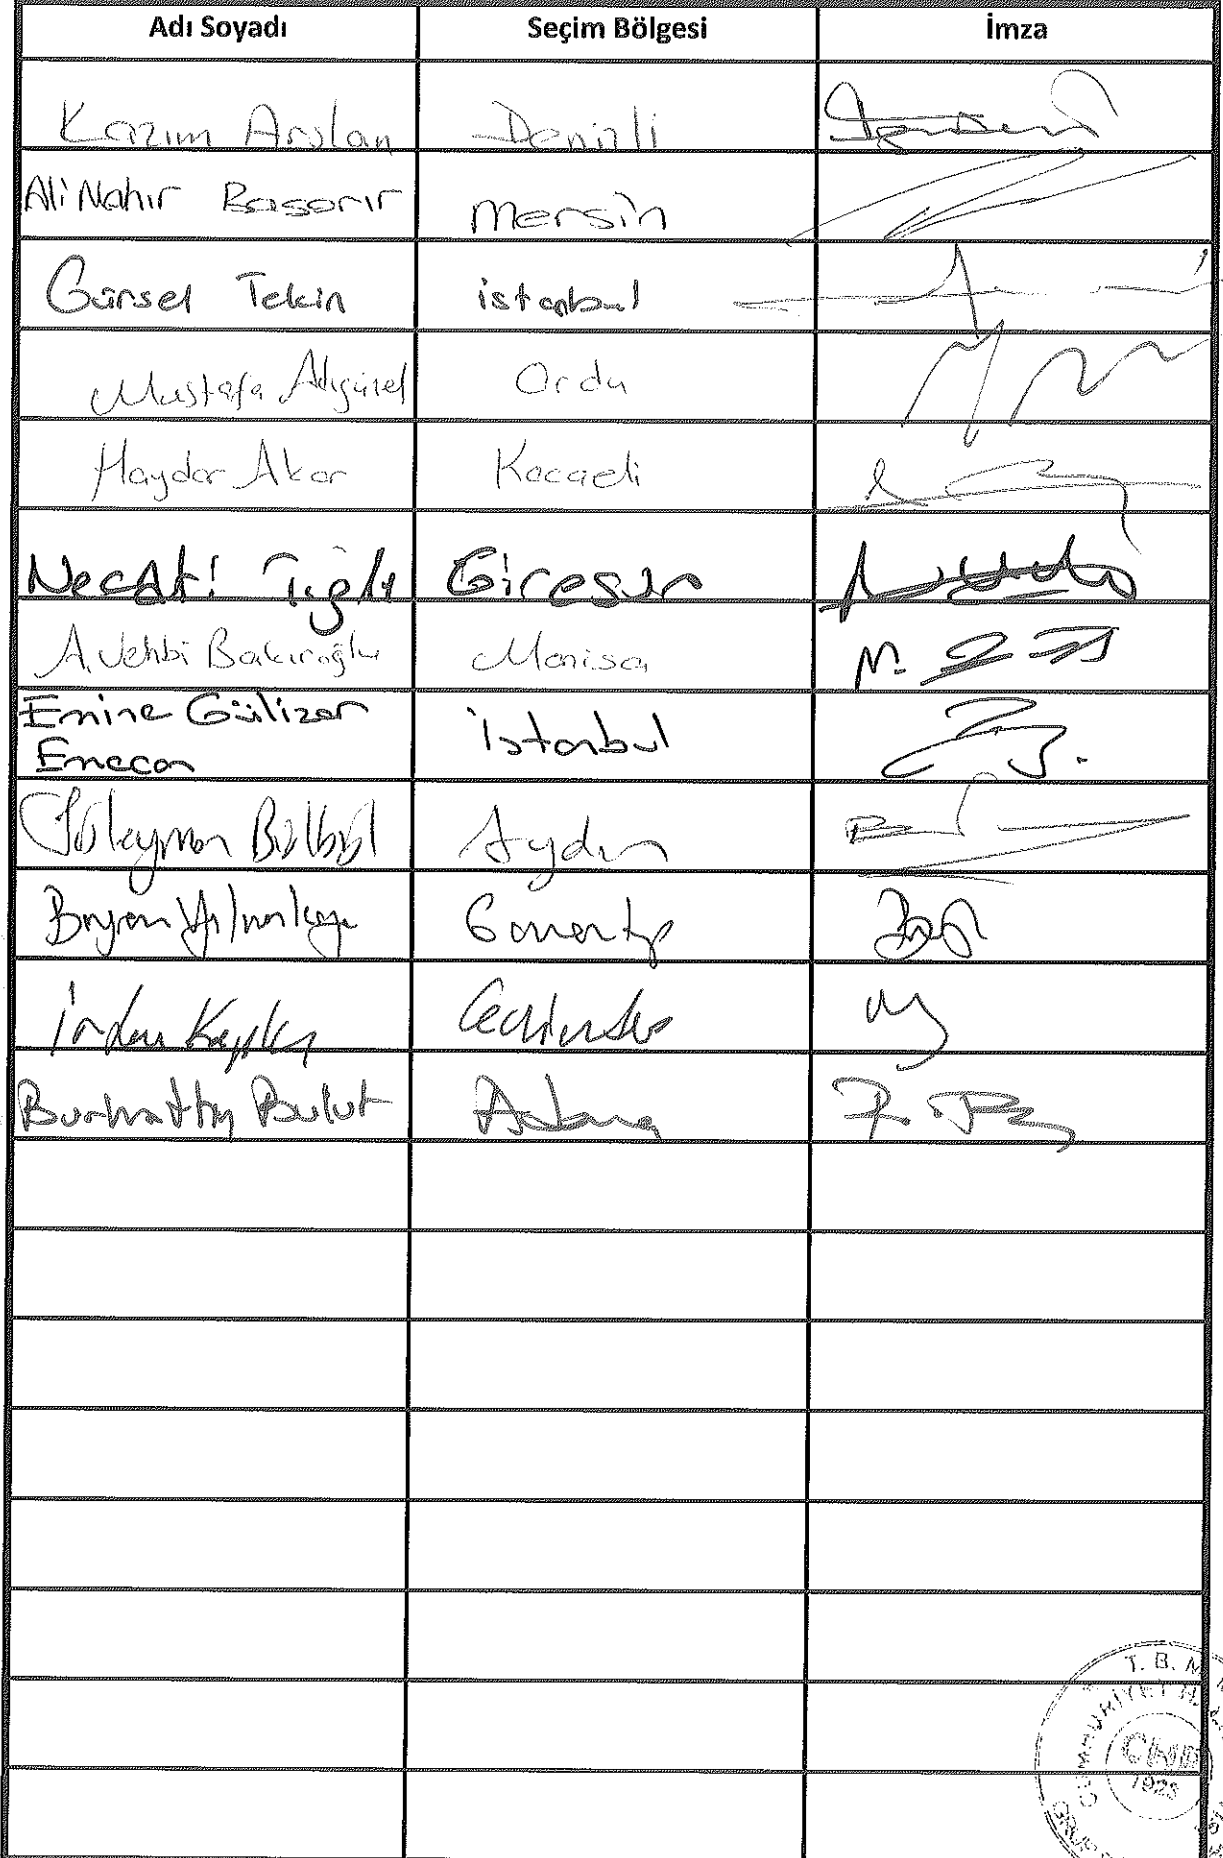 Adı Soyadı Seçim Bölgesi İmza
Kazım Arslan Denizli
Ali Mahir Başarır Mersin
Gürsel Tekin istanbul
Mustafa Adıgüzel Ordu
Haydar Akar Kocaeli
Necati Tığlı Giresun
A. Vehbi Bakırlıoğlu Manisa
Emine Gülizar istanbul
Emecan
Süleyman Bülbül Aydın
Bayram Yılmazkaya Gaziantep
İrfan Kaplan
Burhanettin Bulut Adana
T. B. M.
CUMHURİYET H
CHP
1923